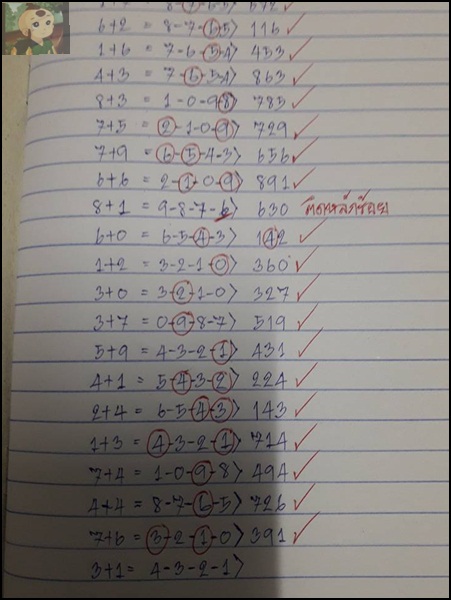 6+2 = 8-7-6-5> 116
1+6 = 7-6-5-4> 453
4+3 = 7-6-5-4> 863
8+3 = 1-0-9-8> 785
7+5 = 2-1-0-9> 729
7+9 = 6-5-4-3> 656
6+6 = 2-1-0-9> 891
8+1 = 9-8-7-6> 630
6+0 = 6-5-4-3> 142
1+2 = 3-2-1-0> 360
3+0 = 3-2-1-0> 327
3+7 = 0-9-8-7> 519
5+9 = 4-3-2-1> 431
4+1 = 5-4-3-2> 224
2+4 = 6-5-4-3> 143
1+3 = 4-3-2-1> 714
7+4 = 1-0-9-8> 494
4+4 = 8-7-6-5> 726
7+6 = 3-2-1-0> 391
3+1 = 4-3-2-1>